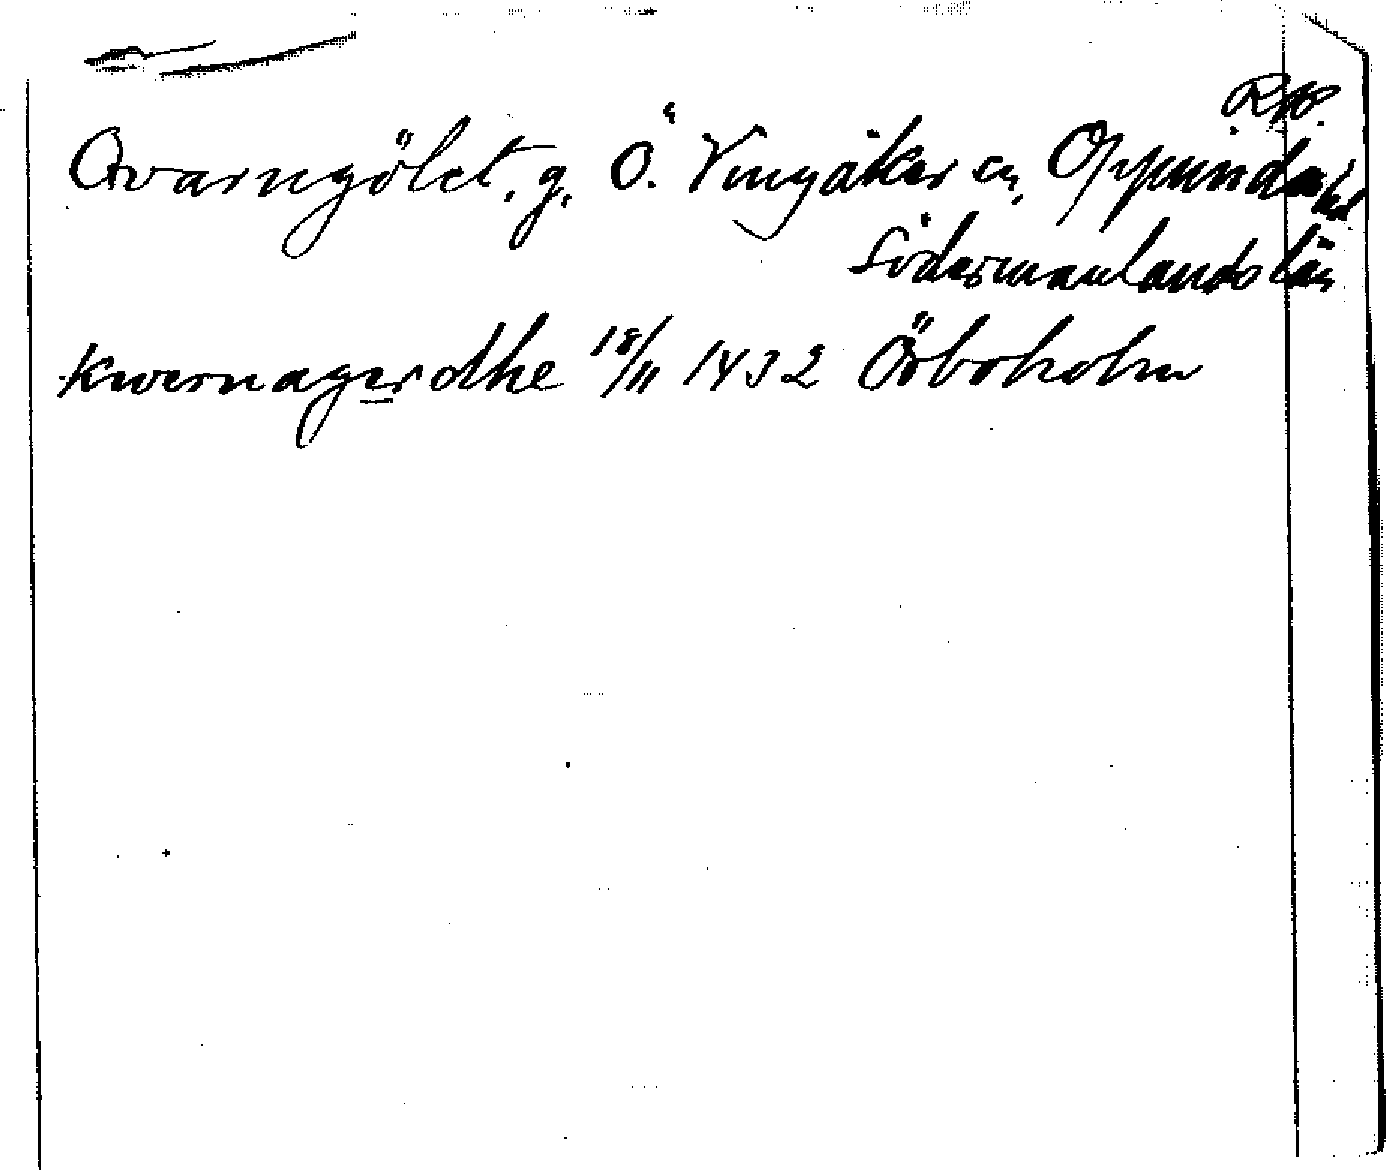 Rap.
Qvarngölet, g. Ö. Vingåker sn, Oppunda hd
Södermanlands län
Kwernagerdhe 18/11 1432 Örboholm